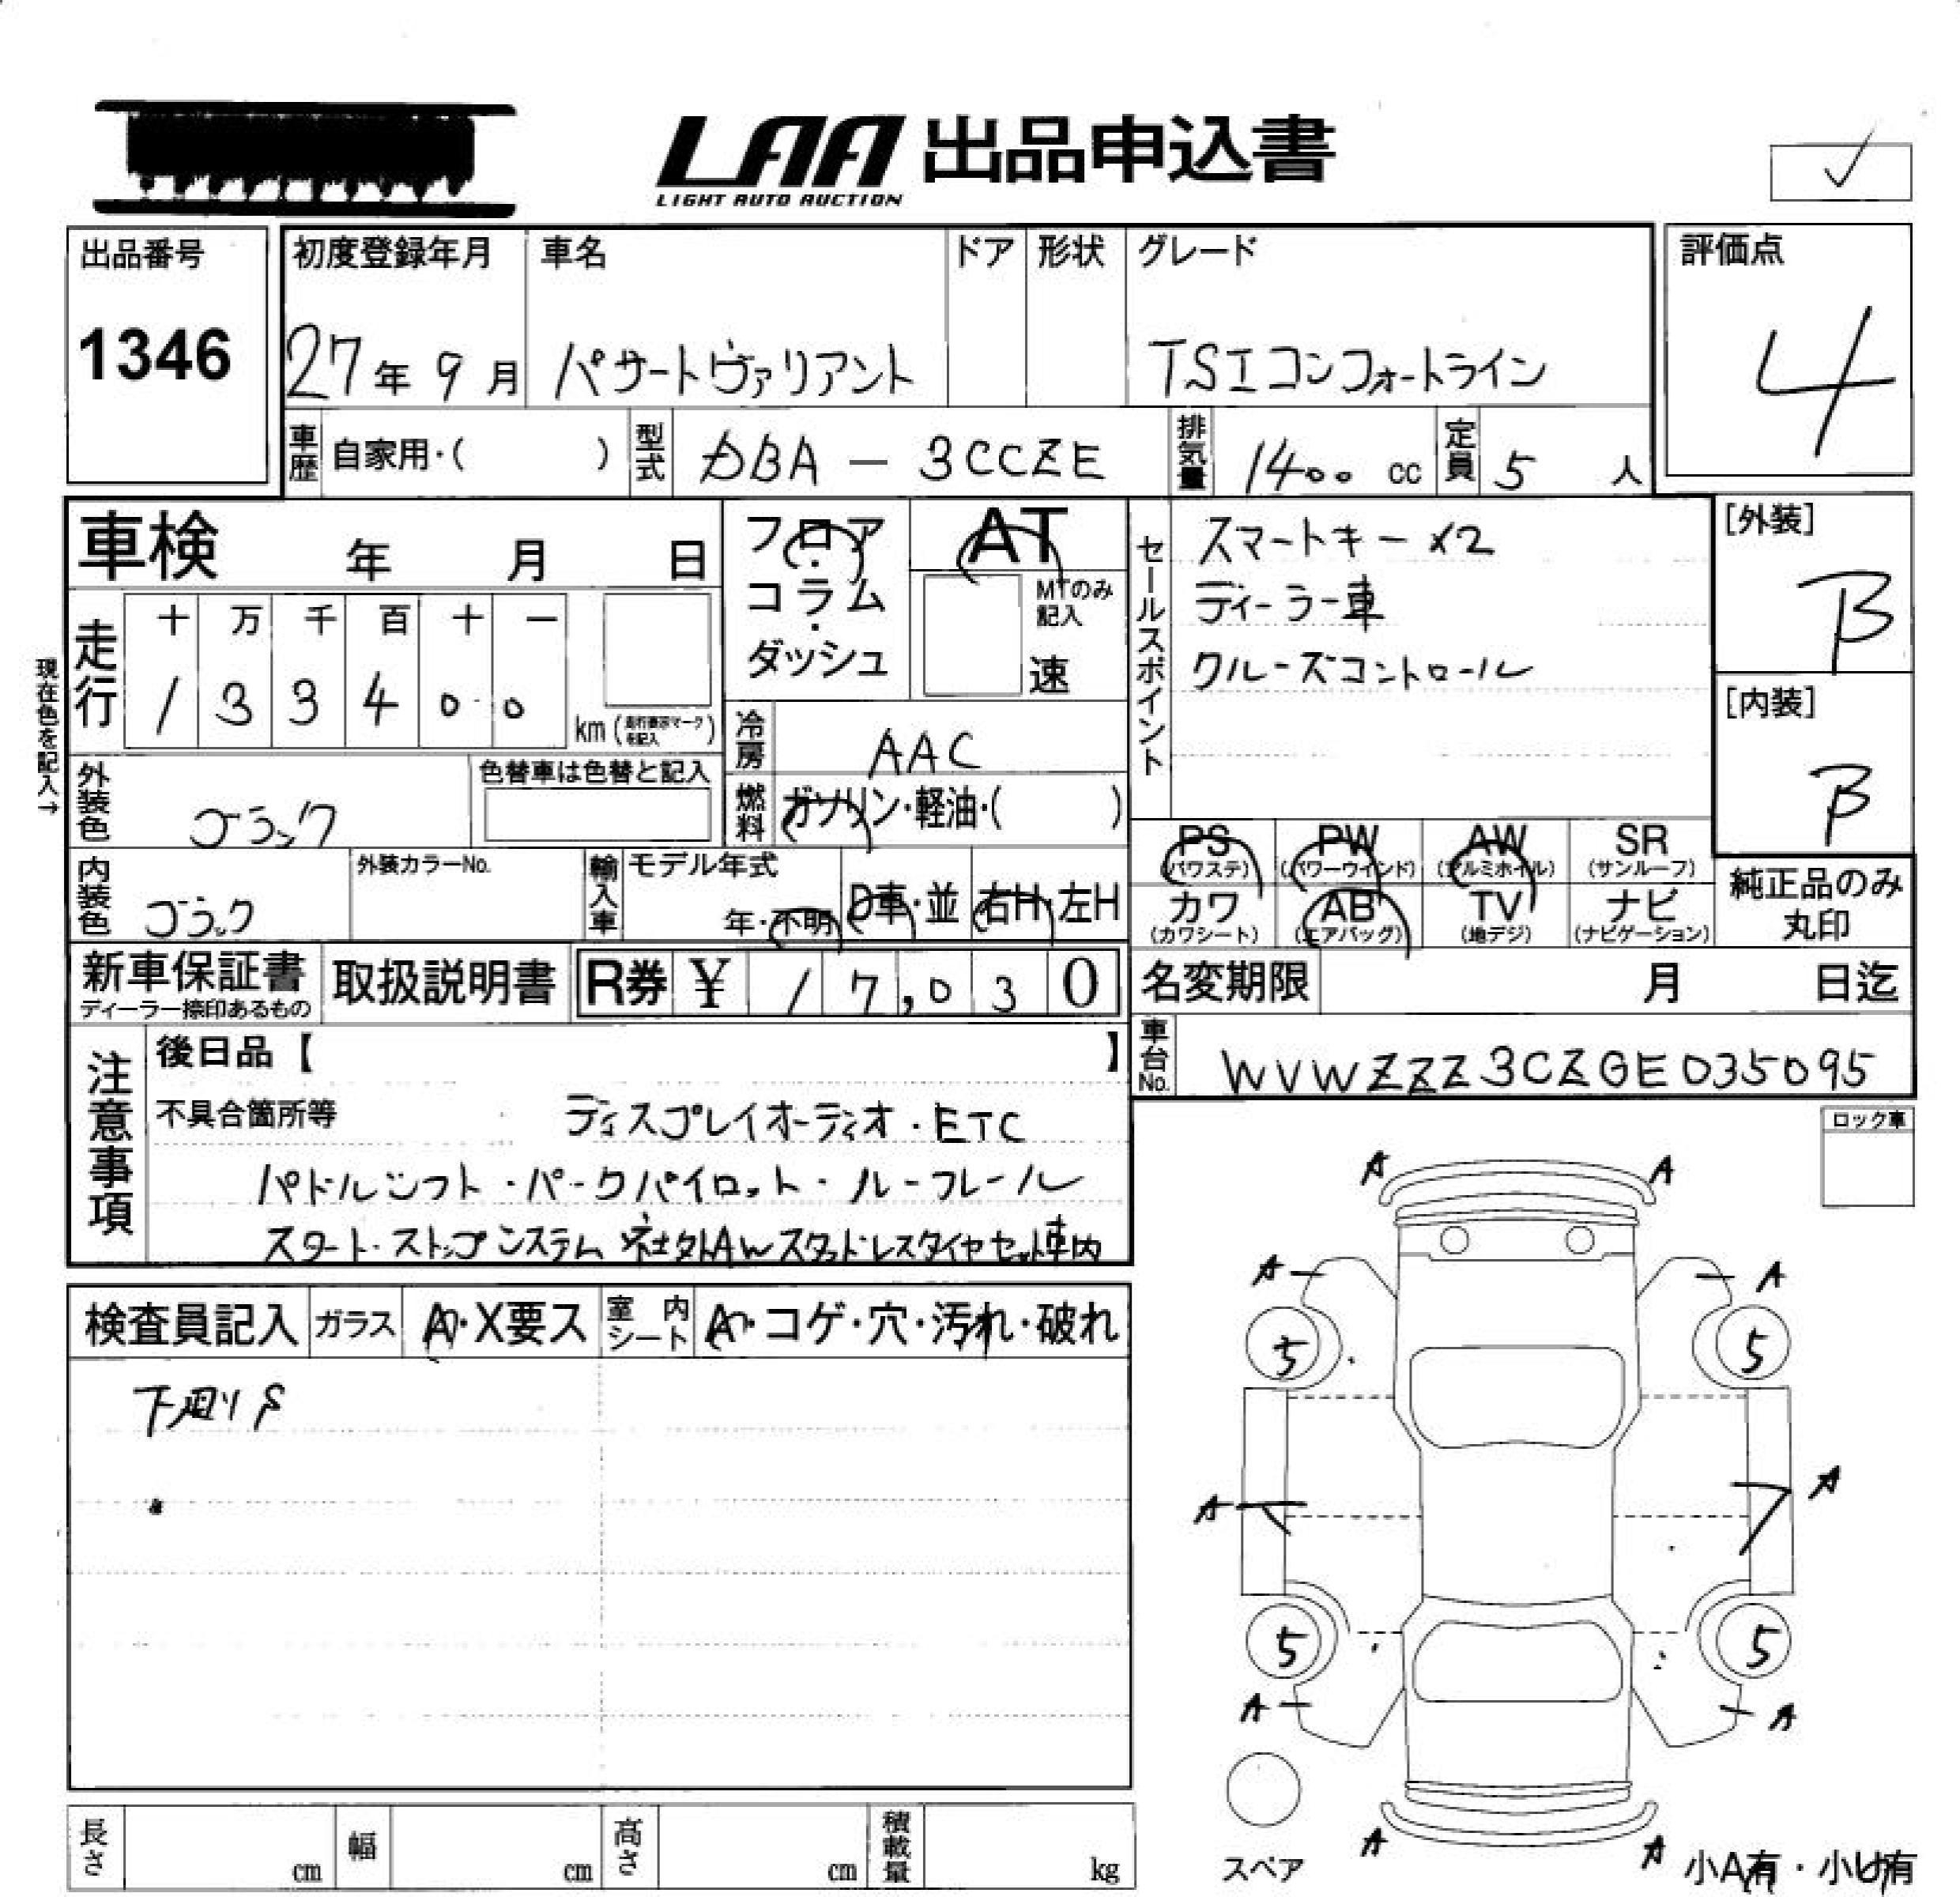 LAA 出品申込書
LIGHT AUTO AUCTION
出品番号
1346
初度登録年月
27年9月
車名
パサートヴァリアント
ドア
形状
グレード
TSIコンフォートライン
評価点
4
車歴
自家用・( )
型式
DBA - 3CCZE
排気量
1400 cc
定員
5 人
車検 年 月 日
フロア・コラム・ダッシュ
AT
MTのみ記入
速
セールスポイント
スマートキー×2
ディーラー車
クルーズコントロール
[外装]
B
[内装]
B
現在色を記入→
走行
十 万 千 百 十 一
1 3 3 4 0 0
km (走行表示マークを記入)
冷房
AAC
外装色
ブラック
色替車は色替と記入
燃料
ガソリン・軽油・( )
PS (パワステ)
PW (パワーウインド)
AW (アルミホイル)
SR (サンルーフ)
カワ (カワシート)
AB (エアバッグ)
TV (地デジ)
ナビ (ナビゲーション)
純正品のみ丸印
内装色
ブラック
外装カラーNo.
輸入車
モデル年式
年・不明
D車・並
右H・左H
新車保証書
ディーラー捺印あるもの
取扱説明書
R券 ¥ 17,030
名変期限 月 日迄
車台No.
WVWZZZ3CZGE035095
注意事項
後日品【 】
不具合箇所等
ディスプレイオーディオ・ETC
パドルシフト・パークパイロット・ルーフレール
スタート・ストップシステム 社外AWスタッドレスタイヤセット車内
ロック車
検査員記入
ガラス
A・X要ス
室内シート
A・コゲ・穴・汚れ・破れ
下廻りS
A A
A A
5 5
A A
5 5
A A
A A
スペア
小A有・小U有
長さ cm
幅 cm
高さ cm
積載量 kg